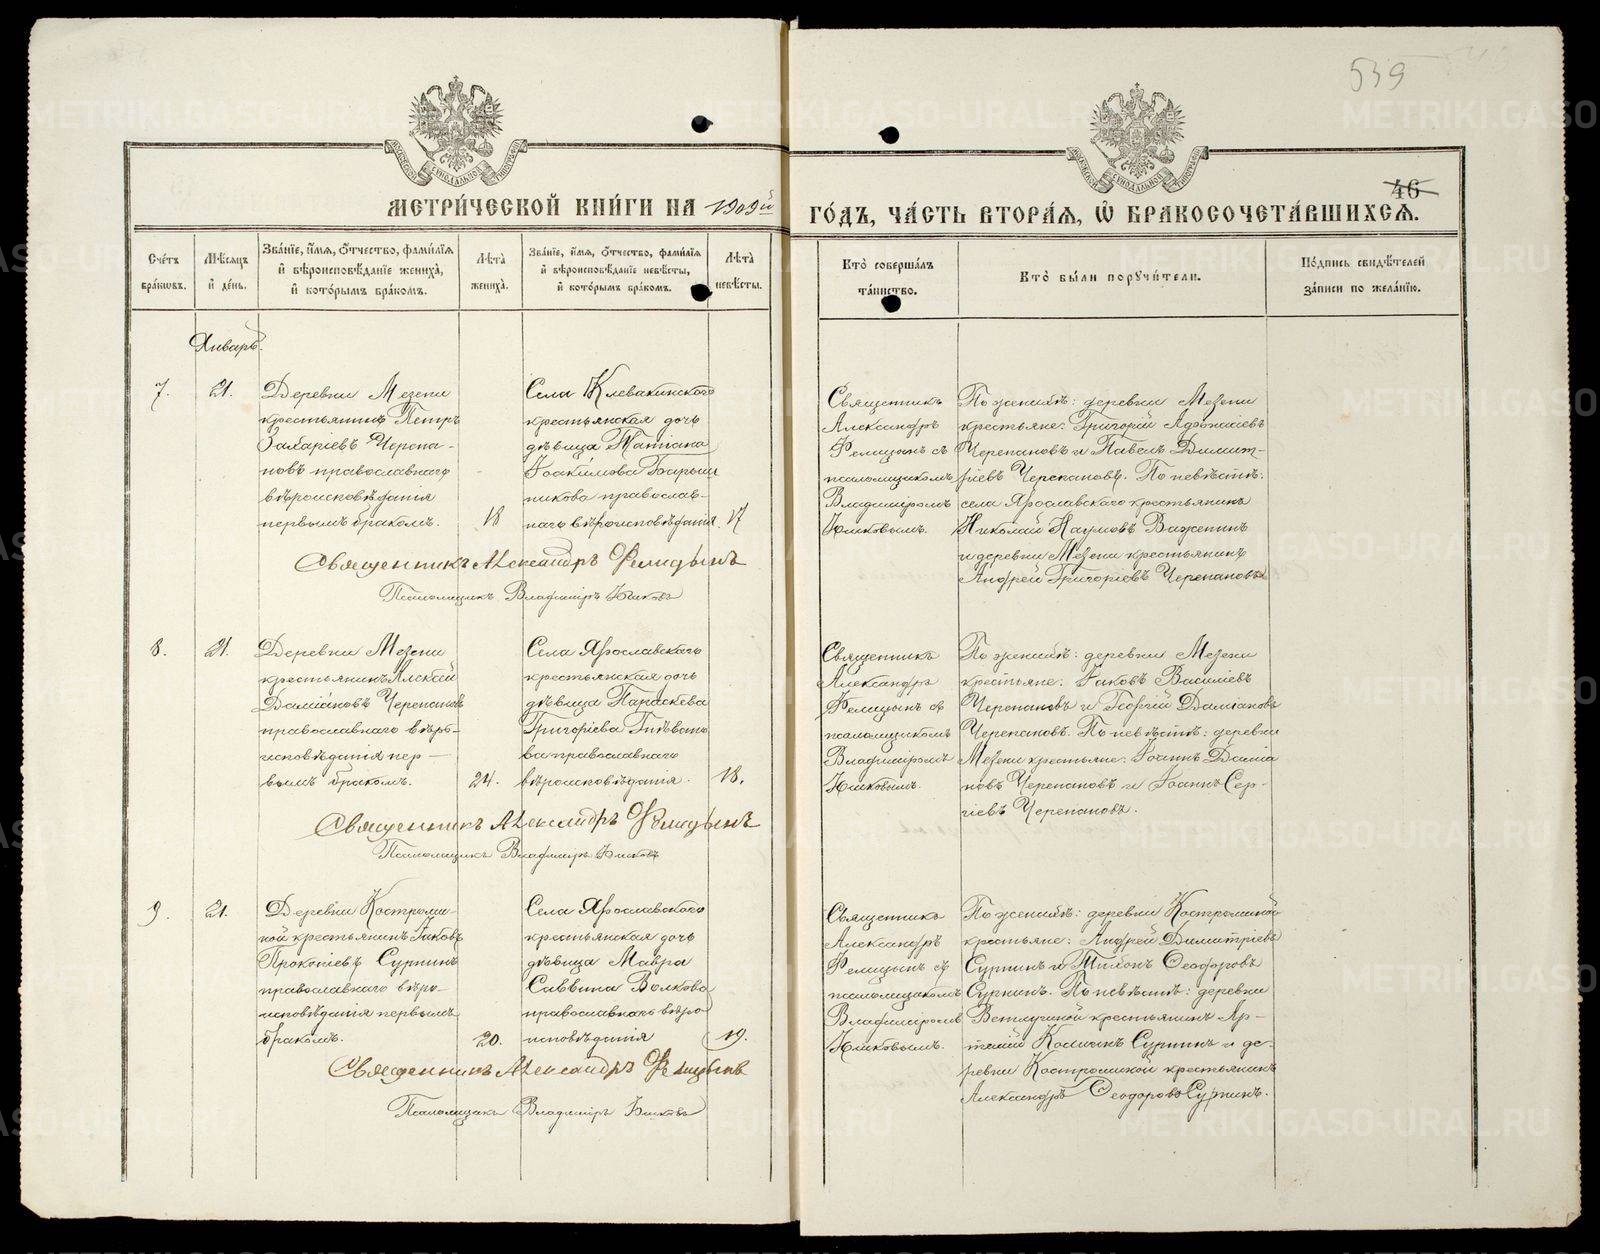 539
46
МЕТРИ́ЧЕСКОЙ КНИ́ГИ НА 1909й
ГО́ДЪ, ЧА́СТЬ ВТОРА́Я, Ѡ҆ БРАКОСОЧЕТА́ВШИХСЯ.
Сче́тъ бра́ковъ.
Мѣ́сяцъ и҆ де́нь.
Зва́нїе, и҆́мя, ѻ҆́тчество, фами́лїя
и҆ вѣроисповѣ́данїе жениха̀,
и҆ кото́рымъ бра́комъ.
Лѣ́та жениха̀.
Зва́нїе, и҆́мя, ѻ҆́тчество, фами́лїя
и҆ вѣроисповѣ́данїе невѣ́сты,
и҆ кото́рымъ бра́комъ.
Лѣ́та невѣ́сты.
Кто̀ соверша́лъ
та́инство.
Кто̀ бы́ли поручи́тели.
По́дпись свидѣ́телей
за́писи по жела́нїю.
Январь.
7.
21.
Деревни Мезени
крестьянинъ Петръ
Захаріевъ Черепа-
новъ православнаго
вѣроисповѣданія
первымъ бракомъ.
18
Села Клевакинского
крестьянская дочь
дѣвица Татіана
Іоакимова
никова православ-
наго вѣроисповѣданія.
17
Священникъ
Александръ
Фелицынъ съ
псаломщикомъ
Владиміромъ
По женихѣ: деревни Мезени
крестьяне: Григорій
Черепановъ и Павелъ Димит-
ріевъ Черепановъ. По невѣстѣ:
села Ярославскаго крестьянинъ
Николай Наумовъ Важенинъ
и деревни Мезени крестьянинъ
Андрей Григоріевъ Черепановъ
Священникъ Александръ Фелицынъ
Псаломщикъ Владиміръ
8.
21.
Деревни Мезени
крестьянинъ
Даміановъ Черепановъ
православнаго вѣро-
исповѣданія пер-
вымъ бракомъ.
24.
Села Ярославскаго
крестьянская дочь
дѣвица Параскева
Григоріева
ва православнаго
вѣроисповѣданія.
18.
Священникъ
Александръ
Фелицынъ съ
псаломщикомъ
Владиміромъ
По женихѣ: деревни Мезени
крестьяне: Іаковъ Василіевъ
Черепановъ и Георгій Даміановъ
Черепановъ. По невѣстѣ: деревни
Мезени крестьяне: Іоаннъ Даміа
новъ Черепановъ и Іоаннъ Сер-
гіевъ Черепановъ.
Священникъ Александръ Фелицынъ
Псаломщикъ Владиміръ
9.
21.
Деревни Костроми-
ной крестьянинъ Іаковъ
Прокопіевъ Суринъ
православнаго вѣро-
исповѣданія первымъ
бракомъ.
20.
Села Ярославского
крестьянская дочь
дѣвица Мавра
Саввина Волкова
православнаго вѣро
исповѣданія
19.
Священникъ
Александръ
Фелицынъ съ
псаломщикомъ
Владиміромъ
По женихѣ: деревни Костроминой
крестьяне: Андрей Димитріевъ
Суринъ и Тихонъ Ѳеодоровъ
Суринъ. По невѣстѣ: деревни
крестьянинъ Ар-
темій Суринъ и де-
ревни Костроминой крестьянинъ
Александръ Ѳеодоровъ Суринъ.
Священникъ Александръ Фелицынъ
Псаломщикъ Владиміръ
METRIKI.GASO-URAL.RU